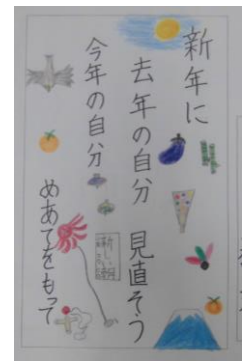 新年に
去年の自分　見直そう
今年の自分
めあてをもって